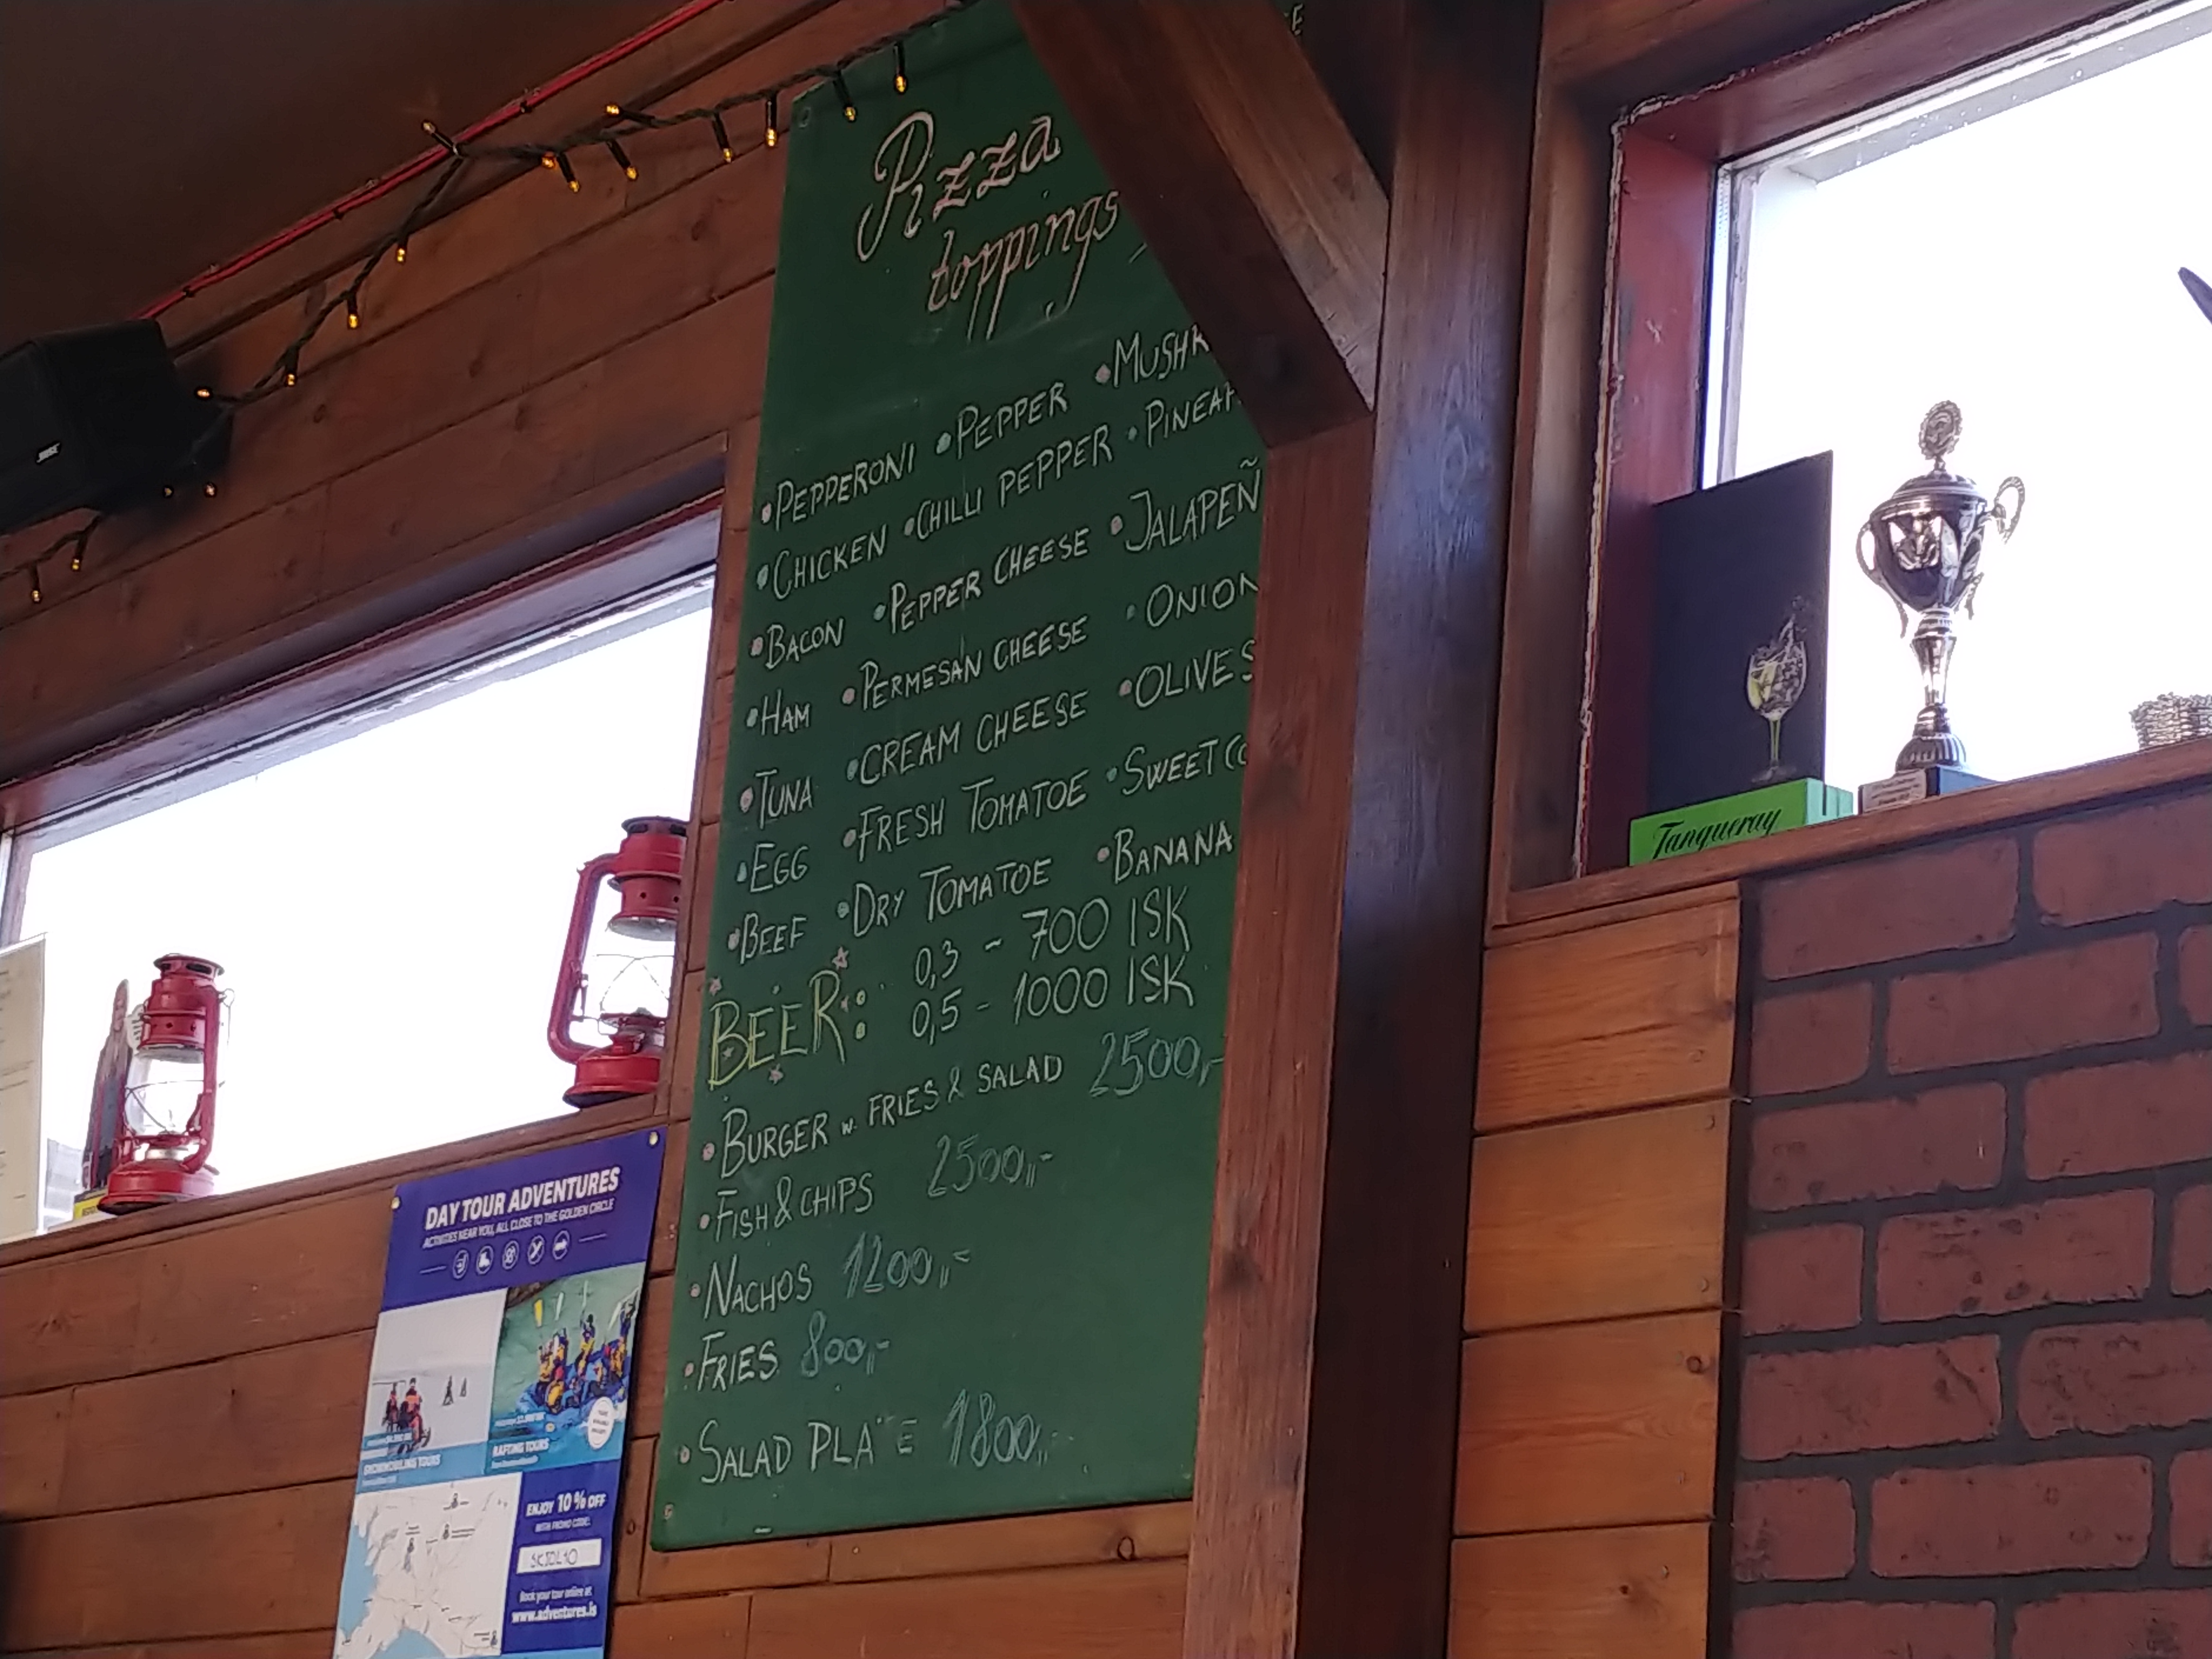 Pizza
toppings
•PEPPERONI •PEPPER •MUSHR
•CHICKEN •CHILLI PEPPER •PINEAP
•BACON •PEPPER CHEESE •JALAPEÑ
•HAM •PERMESAN CHEESE •ONION
•TUNA •CREAM CHEESE •OLIVES
•EGG •FRESH TOMATOE •SWEET CO
•BEEF •DRY TOMATOE •BANANA
BEER: 0,3 - 700 ISK
0,5 - 1000 ISK
•BURGER w. FRIES & SALAD 2500,-
•FISH & CHIPS 2500,,-
•NACHOS 1200,,-
•FRIES 800,,-
•SALAD PLATE 1800,,-
BOSE
Tanqueray
DAY TOUR ADVENTURES
ACTIVITIES NEAR YOU, ALL CLOSE TO THE GOLDEN CIRCLE
SNOWMOBILING TOURS
RAFTING TOURS
ENJOY 10% OFF
WITH PROMO CODE:
SKJOL10
Book your tour online at
www.adventures.is